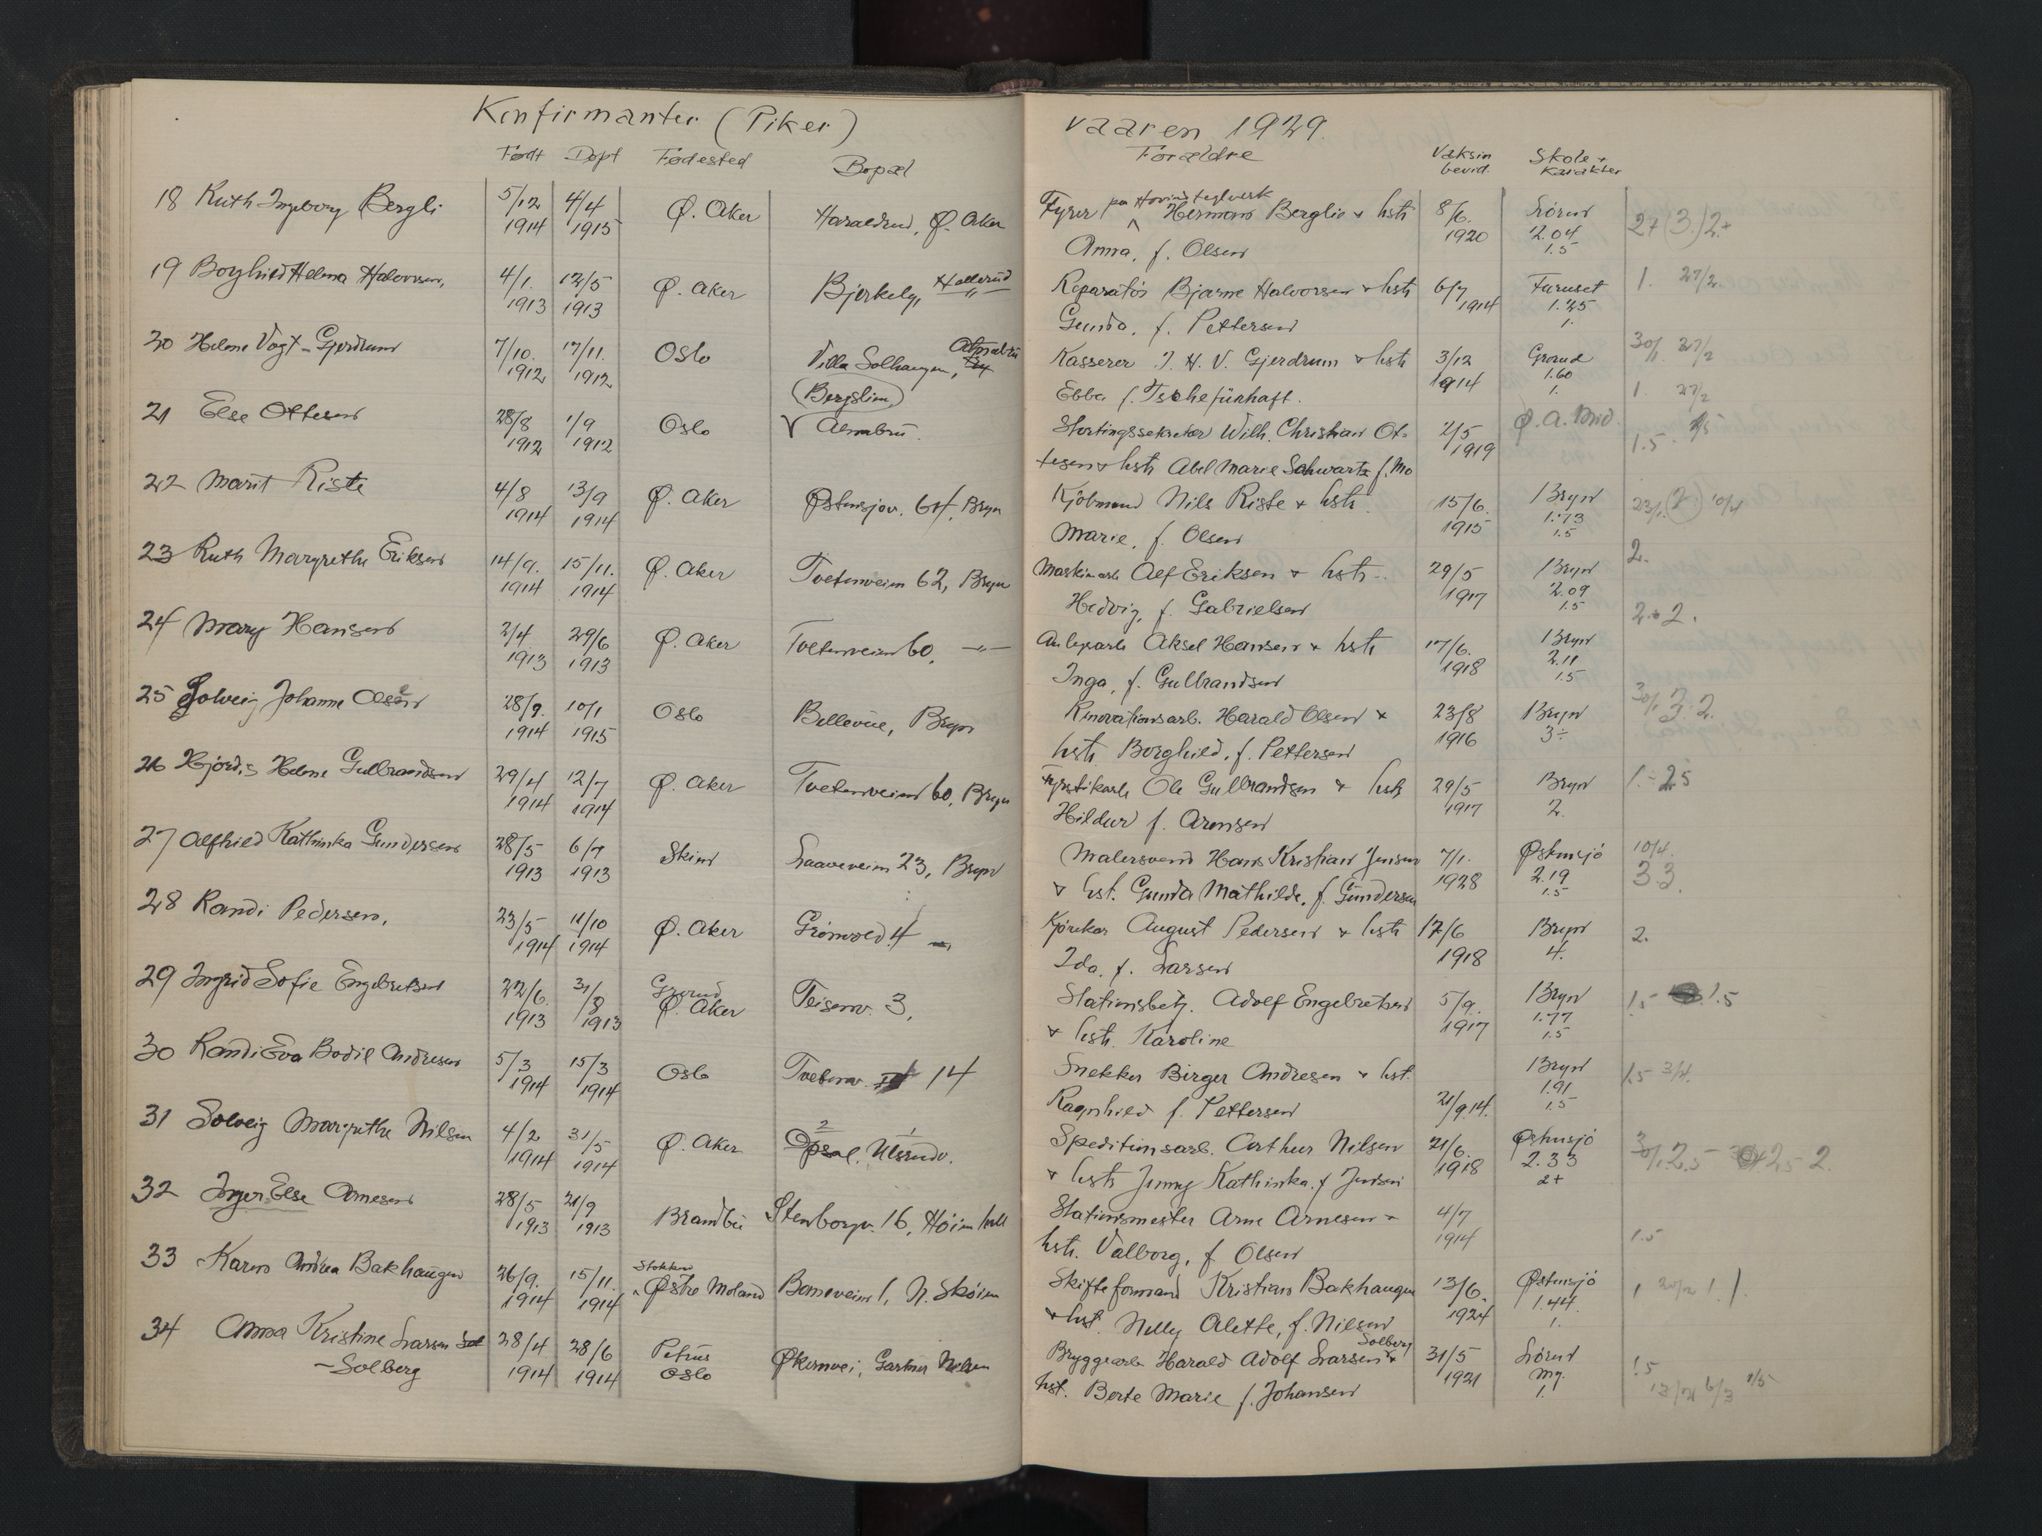 Konfirmanter (Piker) vaaren 1929.
Født Døpt Fødested Bopæl Forældre Vaksin bevid. Skole + Karakter
18 Ruth Ingeborg Bergli 5/12 1914 4/4 1915 Ø. Aker Haraldrud, Ø. Aker Fyrer paa Hovinsteglverk Herman Berglie + hstr 8/6. 1920 Lörend 2.04 1.5 2+ (3.) 2+
Anna, f. Olsen
19 Borghild Helma Halvorsen, 4/1. 1913 12/5 1913 Ø. Aker Bjerkely, Hellerud Reparatör Bjarne Halvorsen + hstr 6/7 1914 Furuset 1.25 1. 1. 27/2.
Gunda, f. Pettersen
20 Helene Vogt-Gjerdrum 7/10. 1912 17/11. 1912 Oslo Villa Solhaugen, Alnabru Kasserer J. H. V. Gjerdrum + hstr 3/12 1914 Grorud 1.60 1. 30/1. 27/2
(Bergslien) Ebba f.
21 Else Ottesen 28/8 1912 1/9 1912 Oslo Alnabru. Stortingssekretær Wilh. Christian Ot- 2/5 1919 Ø. A. Mid. 1.5
tesen + hstr Abel Marie Schwartz f. Mo
22 Marit Riste 4/8 1914 13/9 1914 Ø. Aker Østensjöv. 64, Bryn Kjöbmand Nils Riste + hstr. 15/6. 1915 Bryn 1.73 1.5 23/1. (2.) 10/4
Marie, f. Olsen
23 Ruth Margrethe Eriksen 14/9. 1914 15/11. 1914 Ø. Aker Tvetenveien 62, Bryn Maskinarb Alf Eriksen + hstr. 29/5 1917 Bryn 2.09 1.5 2.
Hedvig, f. Gabrielsen
24 Mary Hansen 2/4 1913 29/6 1913 Ø. Aker Tvetenveien 60, —"— Anlegsarb Aksel Hansen + hstr 17/6. 1918 Bryn 2.11 1.5 2. 2.
Inga, f. Gulbrandsen
25 Solveig Johanne Olsen 28/9. 1914 10/1 1915 Oslo Bellevue, Bryn Renovationsarb. Harald Olsen + 23/8 1916 Bryn 3÷ 30/1 3. 2.
hstr. Borghild, f. Pettersen
26 Hjördis Helene Gulbrandsen 29/4 1914 12/7 1914 Ø. Aker Tvetenveien 60, Bryn Fyrstikarb Ole Gulbrandsen + hstr 29/5 1917 Bryn 2. 1.- 2.5
Hildur f. Arensen
27 Alfhild Kathinka Gundersen 28/5 1913 6/7 1913 Skien Laaveveien 23, Bryn Malersvend Hans Kristian Jensen 7/1. 1928 Østensjö 2.19 1.5 10/4. 3.3.
+ hst. Gunda Mathilde, f. Gundersen
28 Randi Pedersen, 23/5 1914 11/10 1914 Ø. Aker Grönvold 4 Kjörekar August Pedersen + hstr 17/6 1918 Bryn 4. 2.
Ida, f. Larsen
29 Ingrid Sofie Engebretsen 22/6. 1913 31/8 1913 Grorud Ø. Aker Teisenv. 3, Stationsbetj. Adolf Engebretsen 5/9. 1917 Bryn 1.77 1.5 1.5 1.5
+ hstr. Karoline
30 Randi Eva Bodil Andresen 5/3 1914 15/3 1914 Oslo Tvetenv. 14 Snekker Birger Andresen + hst. 21/9 14. Bryn 1.91 1.5 1.5 3/4.
Ragnhild f. Pettersen
31 Solveig Margrethe Nilsen 4/2 1914 31/5 1914 Ø. Aker Opsal, Ulsrudv. Speditionsarb. Arthur Nilsen 21/6. 1918 Østensjö 2.33 2+ 30/1 2.5 2.5 2.
+ hstr Jenny Kathinka f. Jensen
32 Inger Else Arnesen 28/5 1913 21/9 1913 Brandbu Stenborgv. 16, Höienhall Stationsmester Arne Arnesen + 4/7 1914 1.5
hstr. Valborg, f. Olsen
33 Karen Andrea Bakhaugen 26/9. 1914 15/11. 1914 Stokken Østre Moland Baneveien 1, N. Skøien Skifteformand Kristian Bakhaugen 13/6. 1924 Østensjö 1.44. 1. 1 20/2 1. 1.
+ hst. Nelly Alette, f. Nilsen
34 Anna Kristine Larsen 28/4 1914 28/6 1914 Petrus Oslo Økernvei, Gartner Nilsen Bryggearb Harald Adolf Larsen Solberg + 31/5 1921 Lörend Mg. 1. 1.5
-Solberg hst. Berte Marie f. Johansen 6/3